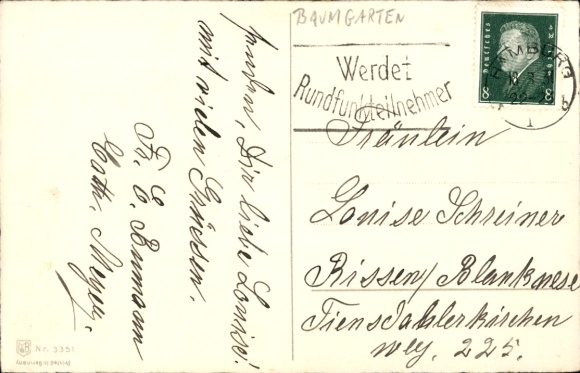 BAUMGARTEN
Werdet
Rundfunkteilnehmer
Deutsches Reich
8 8
HAMBURG
1
b
Fräulein
Louise Schreiner
Rissen/Blankenese
Tiensdahlerkirchen
weg. 225.
senden, Dir liebe Louise!
mit vielen Grüssen.
Fr. E. Baumann
Cath. Meyer.
Nr. 3351
Printed in Germany